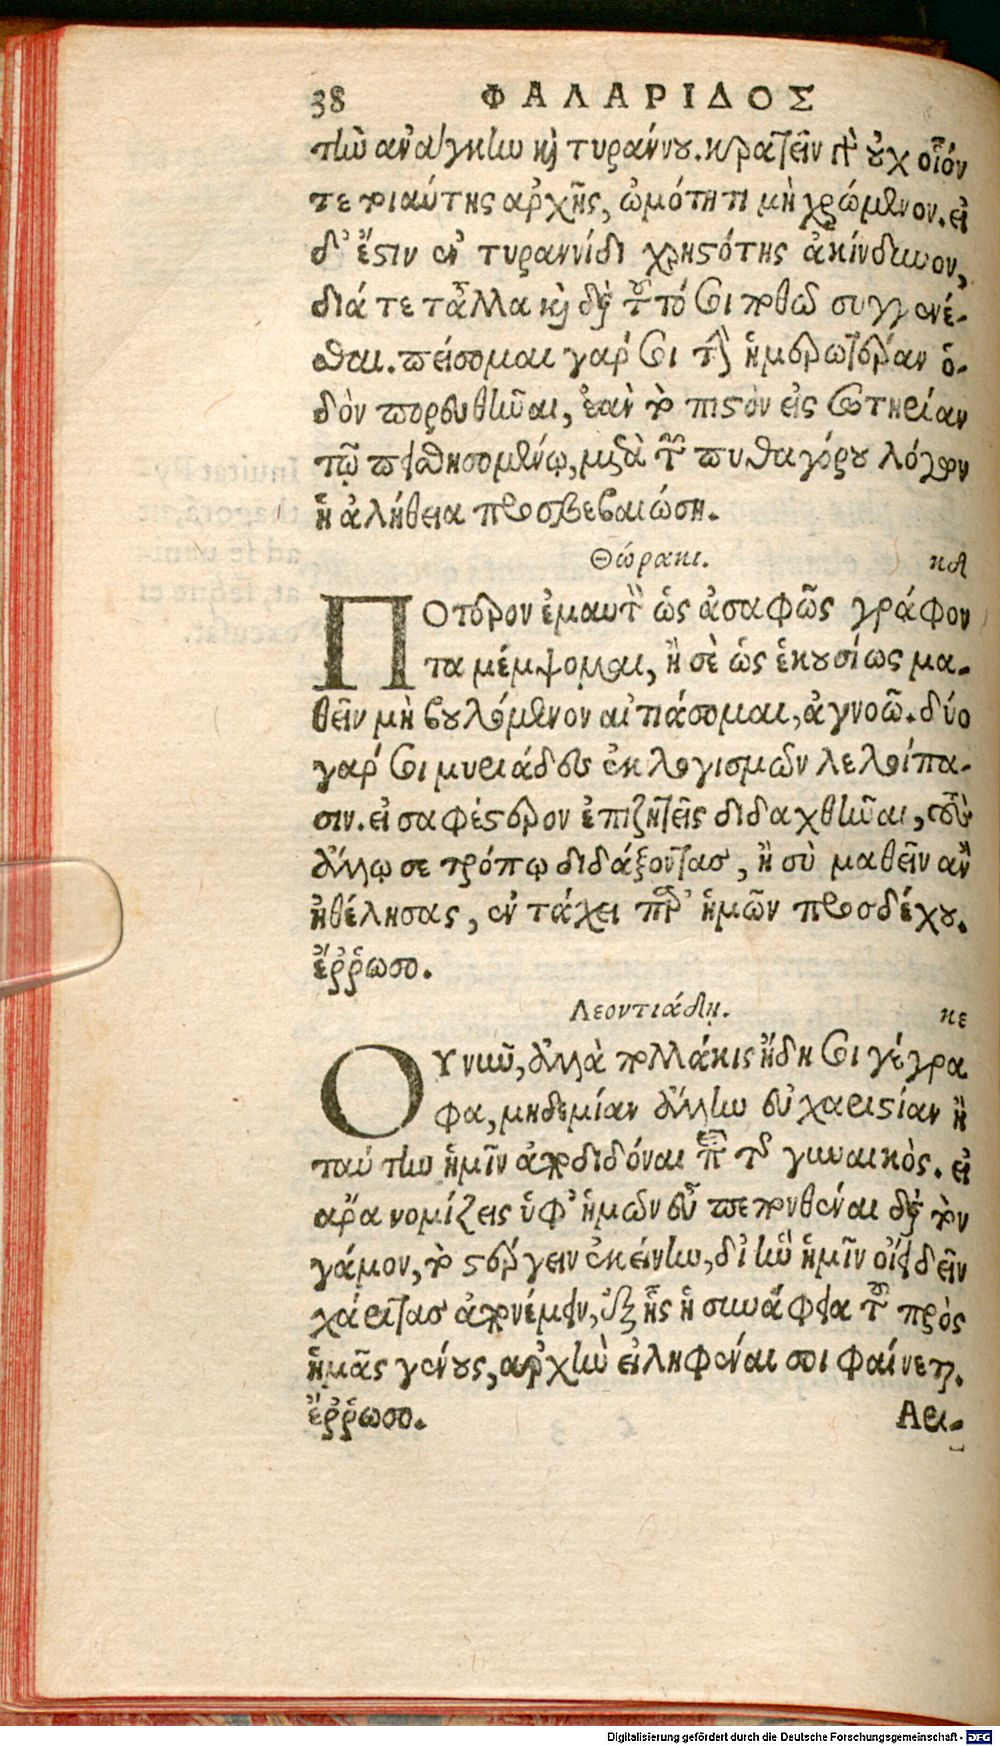 38 ΦΑΛΑΡΙΔΟΣ
τὴν ἀνάγκην καὶ τυράννου. κρατεῖν γὰρ οὐχ οἷόν
τε τοιαύτης ἀρχῆς, ὠμότητι μὴ χρώμενον. εἰ
δ' ἔστιν ἐν τυραννίδι χρηστότης ἀκίνδυνον,
διά τε τἆλλα καὶ διὰ τοῦτό σοι ποθῶ συγγενέ-
σθαι. πείσομαι γάρ σοι τὴν ἡμερωτέραν ὁ-
δὸν πορευθῆναι, ἐὰν τὸ πιστὸν εἰς σωτηρίαν
τῷ πεισθησομένῳ, μετὰ τῶν πυθαγόρου λόγων
ἡ ἀλήθεια προσβεβαιώσῃ.
Θώρακι. κδ
ΠΟτερον ἐμαυτὸν ὡς ἀσαφῶς γράφον
τα μέμψομαι, ἢ σὲ ὡς ἑκουσίως μα-
θεῖν μὴ βουλόμενον αἰτιάσομαι, ἀγνοῶ. δύο
γάρ σοι μυριάδες ἐκ λογισμῶν λελοίπα-
σιν. εἰ σαφέστερον ἐπιζητεῖς διδαχθῆναι, τοὺς
ἄλλῳ σε τρόπῳ διδάξοντας, ἢ σὺ μαθεῖν ἂν
ἠθέλησας, ἐν τάχει παρ' ἡμῶν προσδέχου.
ἔῤῥωσο.
Λεοντιάδῃ. κε
ΟΥ νῦν, ἀλλὰ πολλάκις ἤδη σοι γέγρα
φα, μηδεμίαν ἄλλην εὐχαριστίαν ἢ
ταύτην ἡμῖν ἀποδιδόναι περὶ τῆς γυναικὸς. εἰ
ἄρα νομίζεις ὑφ' ἡμῶν εὖ πεπονθέναι διὰ τὸν
γάμον, τὸ στέργειν ἐκείνην, δι' ἣν ἡμῖν οἴει δεῖν
χάριτας ἀπονέμειν, ἐξ ἧς ἡ συνάφεια τοῦ πρὸς
ἡμᾶς γένους, ἀρχὴν εἰληφέναι σοι φαίνεται.
ἔῤῥωσο. Αρι-
Digitalisierung gefördert durch die Deutsche Forschungsgemeinschaft - DFG